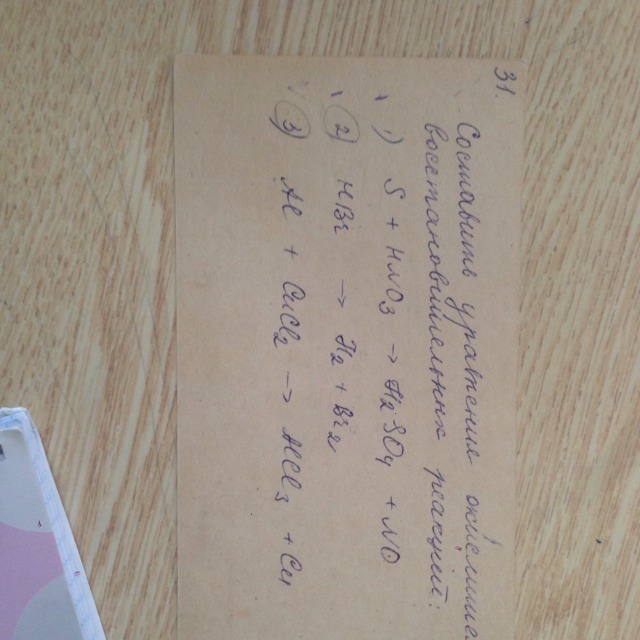 31.
Составить уравнение окислительно
восстановительных реакций:
1) S + HNO3 → H2SO4 + NO
2) HBr → H2 + Br2
3) Al + CuCl2 → AlCl3 + Cu